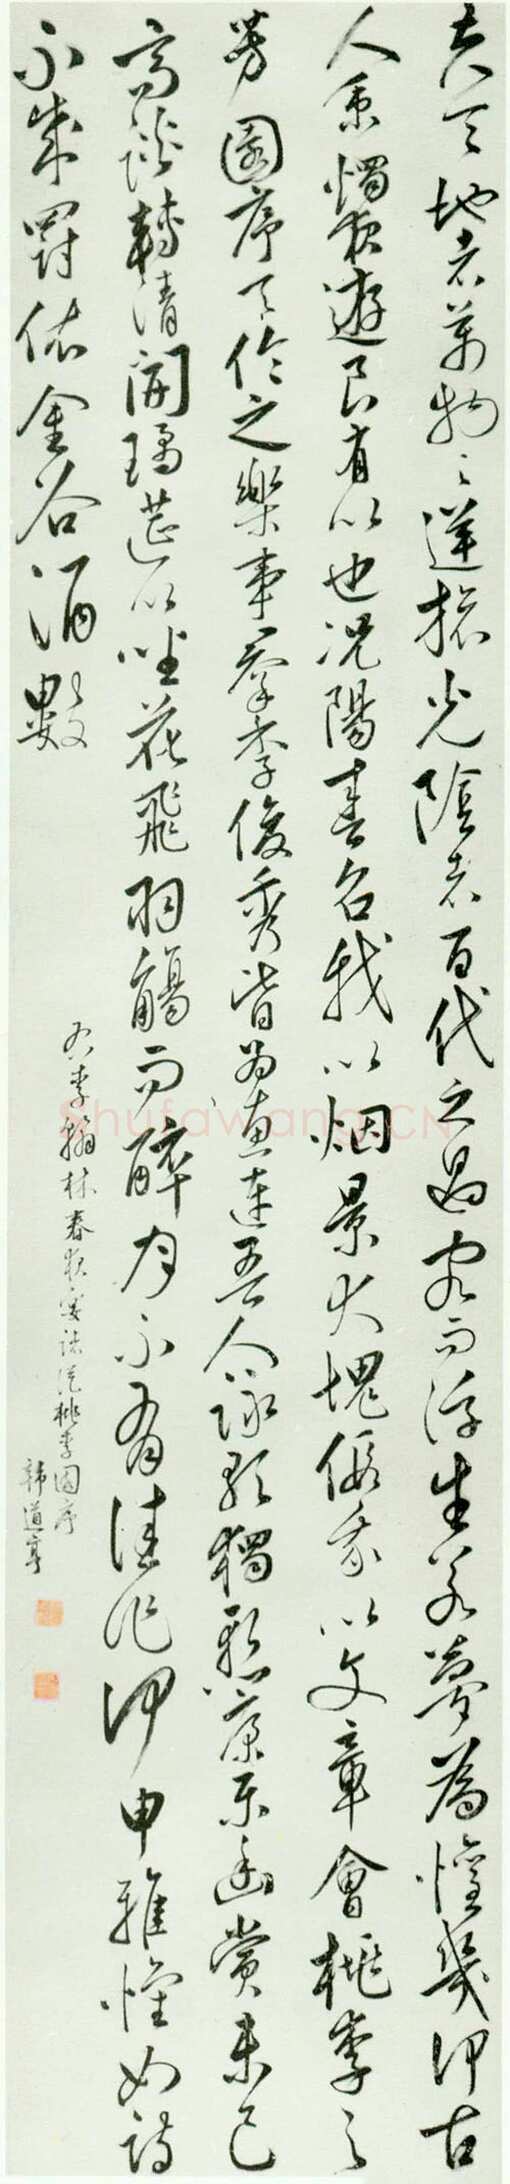 夫天地者萬物之逆旅光陰者百代之過客而浮生若夢為懽幾何古
人秉燭夜遊良有以也況陽春召我以烟景大塊假我以文章會桃李之
芳園序天倫之樂事羣季俊秀皆為惠連吾人詠歌獨慙康樂幽賞未已
高談轉清開瓊筵以坐花飛羽觴而醉月不有佳作何申雅懷如詩
不成罰依金谷酒數
右李翰林春夜宴諸從桃李園序
韓道亨
Shufawang.CN